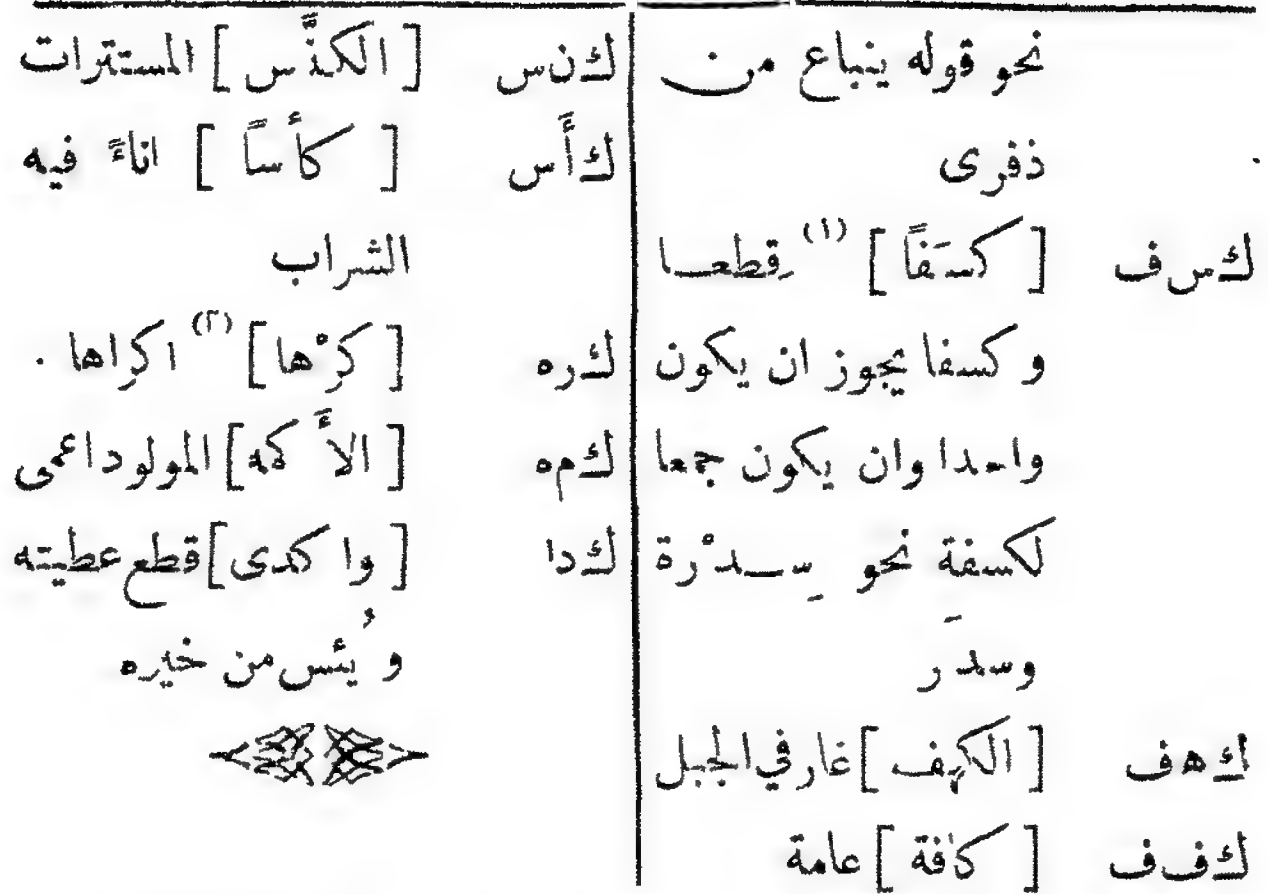 نحو قوله ينباع من
ذفرى
ك س ف [ كسَفاً ] (١) قِطعا
وكسفا يجوز ان يكون
واحدا وان يكون جمعا
لكسفةٍ نحو سِدْرة
وسدَر
ك ه ف [ الكهف ] غار في الجبل
ك ف ف [ كافة ] عامة
ك ن س [ الكنَّس ] المستترات
ك أَ س [ كأساً ] اناءً فيه
الشراب
ك ر ه [ كرْها ] (٢) اكراها .
ك م ه [ الأَكمه ] المولود اعمى
ك د ا [ واكدى ] قطع عطيته
ويُئس من خيره